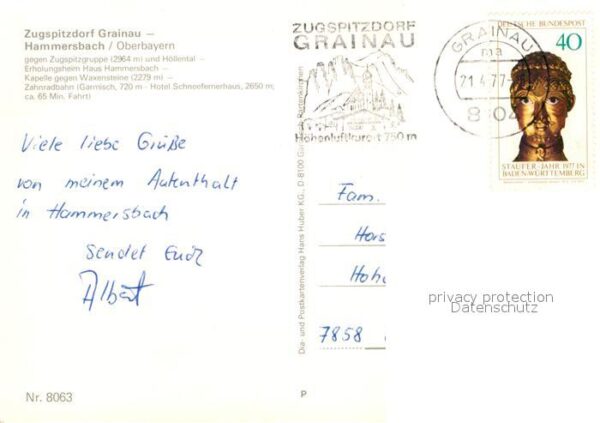 Zugspitzdorf Grainau –
Hammersbach / Oberbayern
gegen Zugspitzgruppe (2964 m) und Höllental –
Erholungsheim Haus Hammersbach –
Kapelle gegen Waxensteine (2279 m) –
Zahnradbahn (Garmisch, 720 m - Hotel Schneefernerhaus, 2650 m;
ca. 65 Min. Fahrt)
Viele liebe Grüße
von meinem Autenthalt
in Hammersbach
sendet Euch
Albert
Nr. 8063
Dia- und Postkartenverlag Hans Huber KG., D 8100 Partenkirchen
P
ZUGSPITZDORF
GRAINAU
Höhenluftkurort 750 m
GRAINAU
ma
21.4.77
8104
DEUTSCHE BUNDESPOST
40
STAUFER-JAHR 1977 IN
BADEN-WÜRTTEMBERG
Fam.
Hors
Hohe
7858
privacy protection
Datenschutz